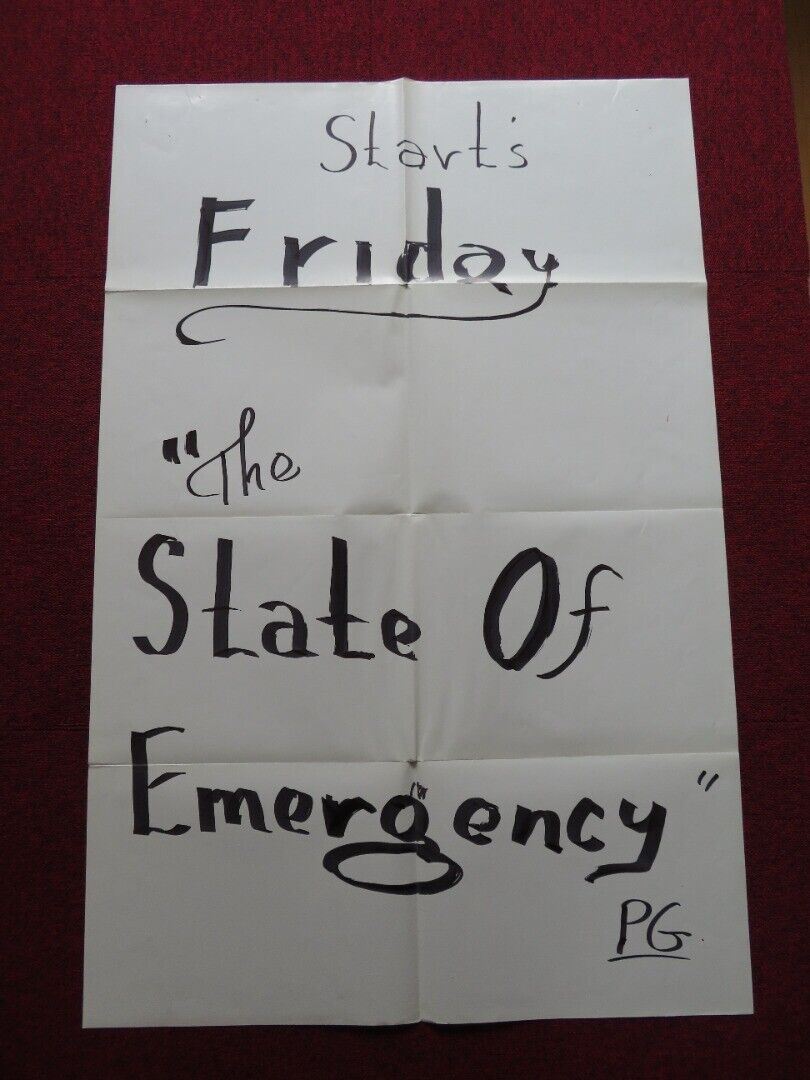 Start's
Friday
"The
State Of
Emergency"
PG